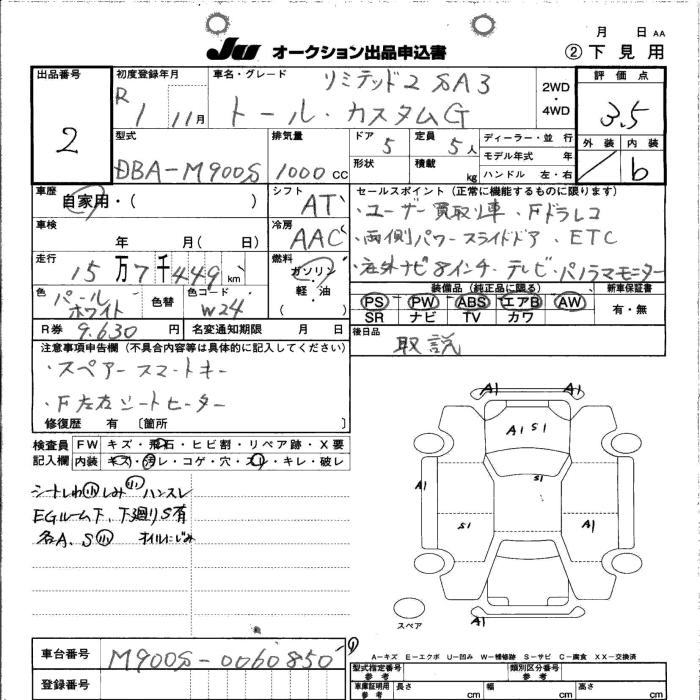 月 日 AA
JU オークション出品申込書
② 下見用
出品番号 2
初度登録年月 R 1 11月
車名・グレード リミテッド2 SA3
トール・カスタムG
2WD・4WD
評価点 3.5
外装 内装 b
型式 DBA-M900S
排気量 1000 cc
ドア 5
定員 5人
形状 積載 kg
ディーラー・並行
モデル年式 年
ハンドル 左・右
車歴 自家用・( )
シフト AT
車検 年 月( 日)
冷房 AAC
走行 15万7千449km
燃料 ガソリン・軽・油 ( )
色 パールホワイト
色替
色コード W24
R券 9.630 円
名変通知期限 月 日
セールスポイント(正常に機能するものに限ります)
・ユーザー買取り車・Fドラレコ
・両側パワースライドドア・ETC
・社外ナビ8インチ・テレビ・パノラマモニター
装備品(純正品に限る)
PS PW ABS エアB AW
SR ナビ TV カワ
新車保証書 有・無
後日品 取説
注意事項申告欄(不具合内容等は具体的に記入してください)
・スペアースマートキー
・F左右シートヒーター
修復歴 有 〔箇所 〕
検査員記入欄
FW キズ・飛石・ヒビ割・リペア跡・X要
内装 キズ・汚レ・コゲ・穴・スレ・キレ・破レ
シートしわ小 しみ小 ハンスレ
EGルーム下、下廻りS有
各A、S小 オイルにじみ
A1 A1
A1 S1
S1
A1
S1 A1
A1
スペア
A-キズ E-エクボ U-凹み W-補修跡 S-サビ C-腐食 XX-交換済
車台番号 M900S-0060850
①
登録番号
型式指定番号 参考
類別区分番号 参考
車庫証明用 参考 長さ cm 幅 cm 高さ cm